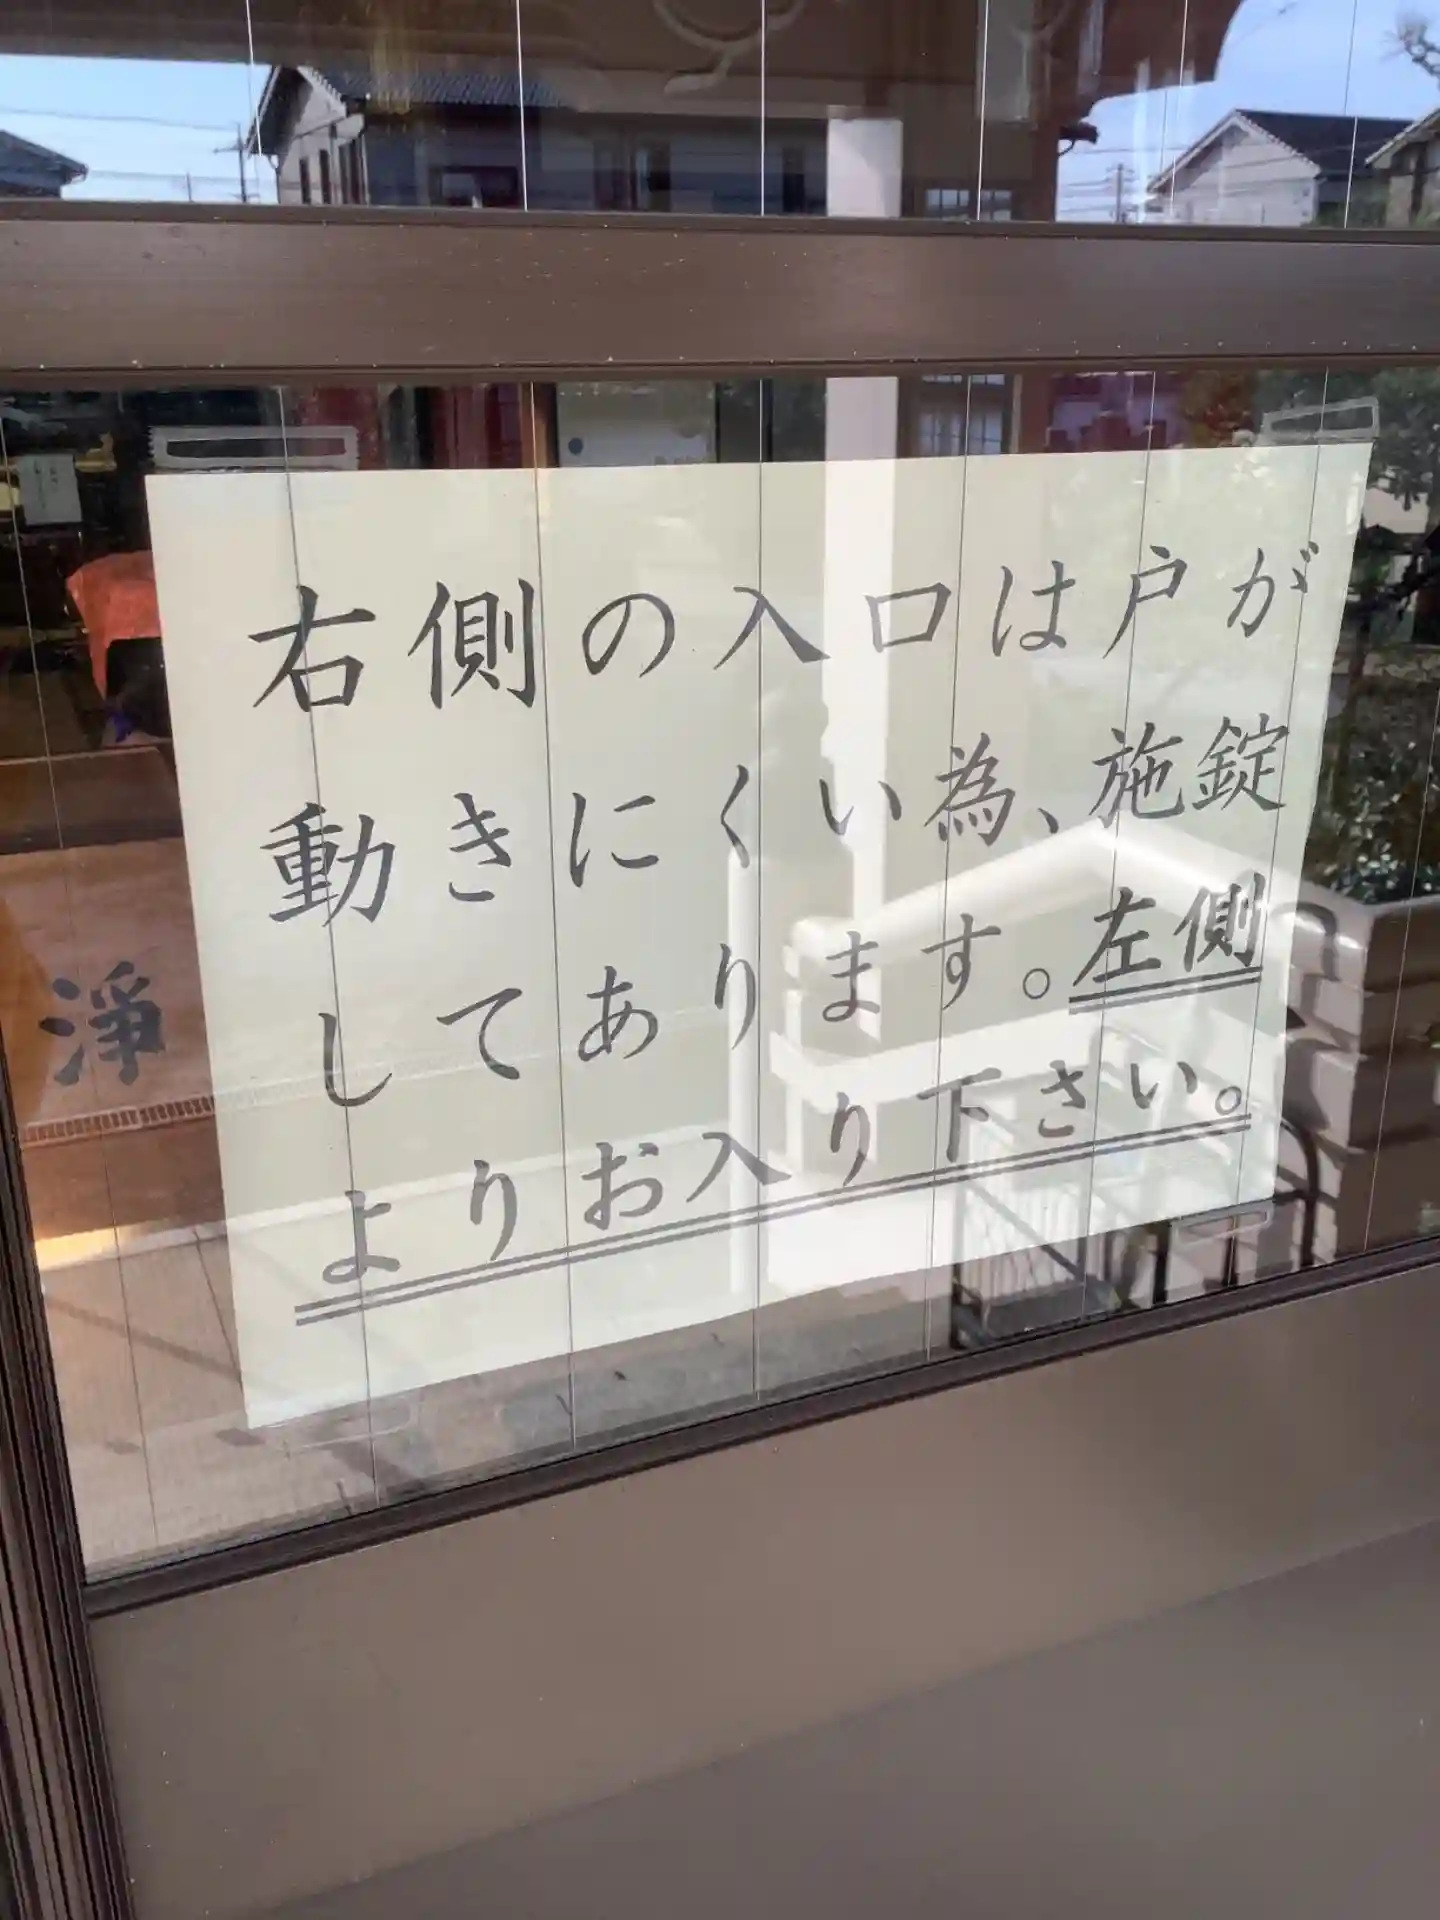 右側の入口は戸が
動きにくい為、施錠
してあります。左側
よりお入り下さい。
淨